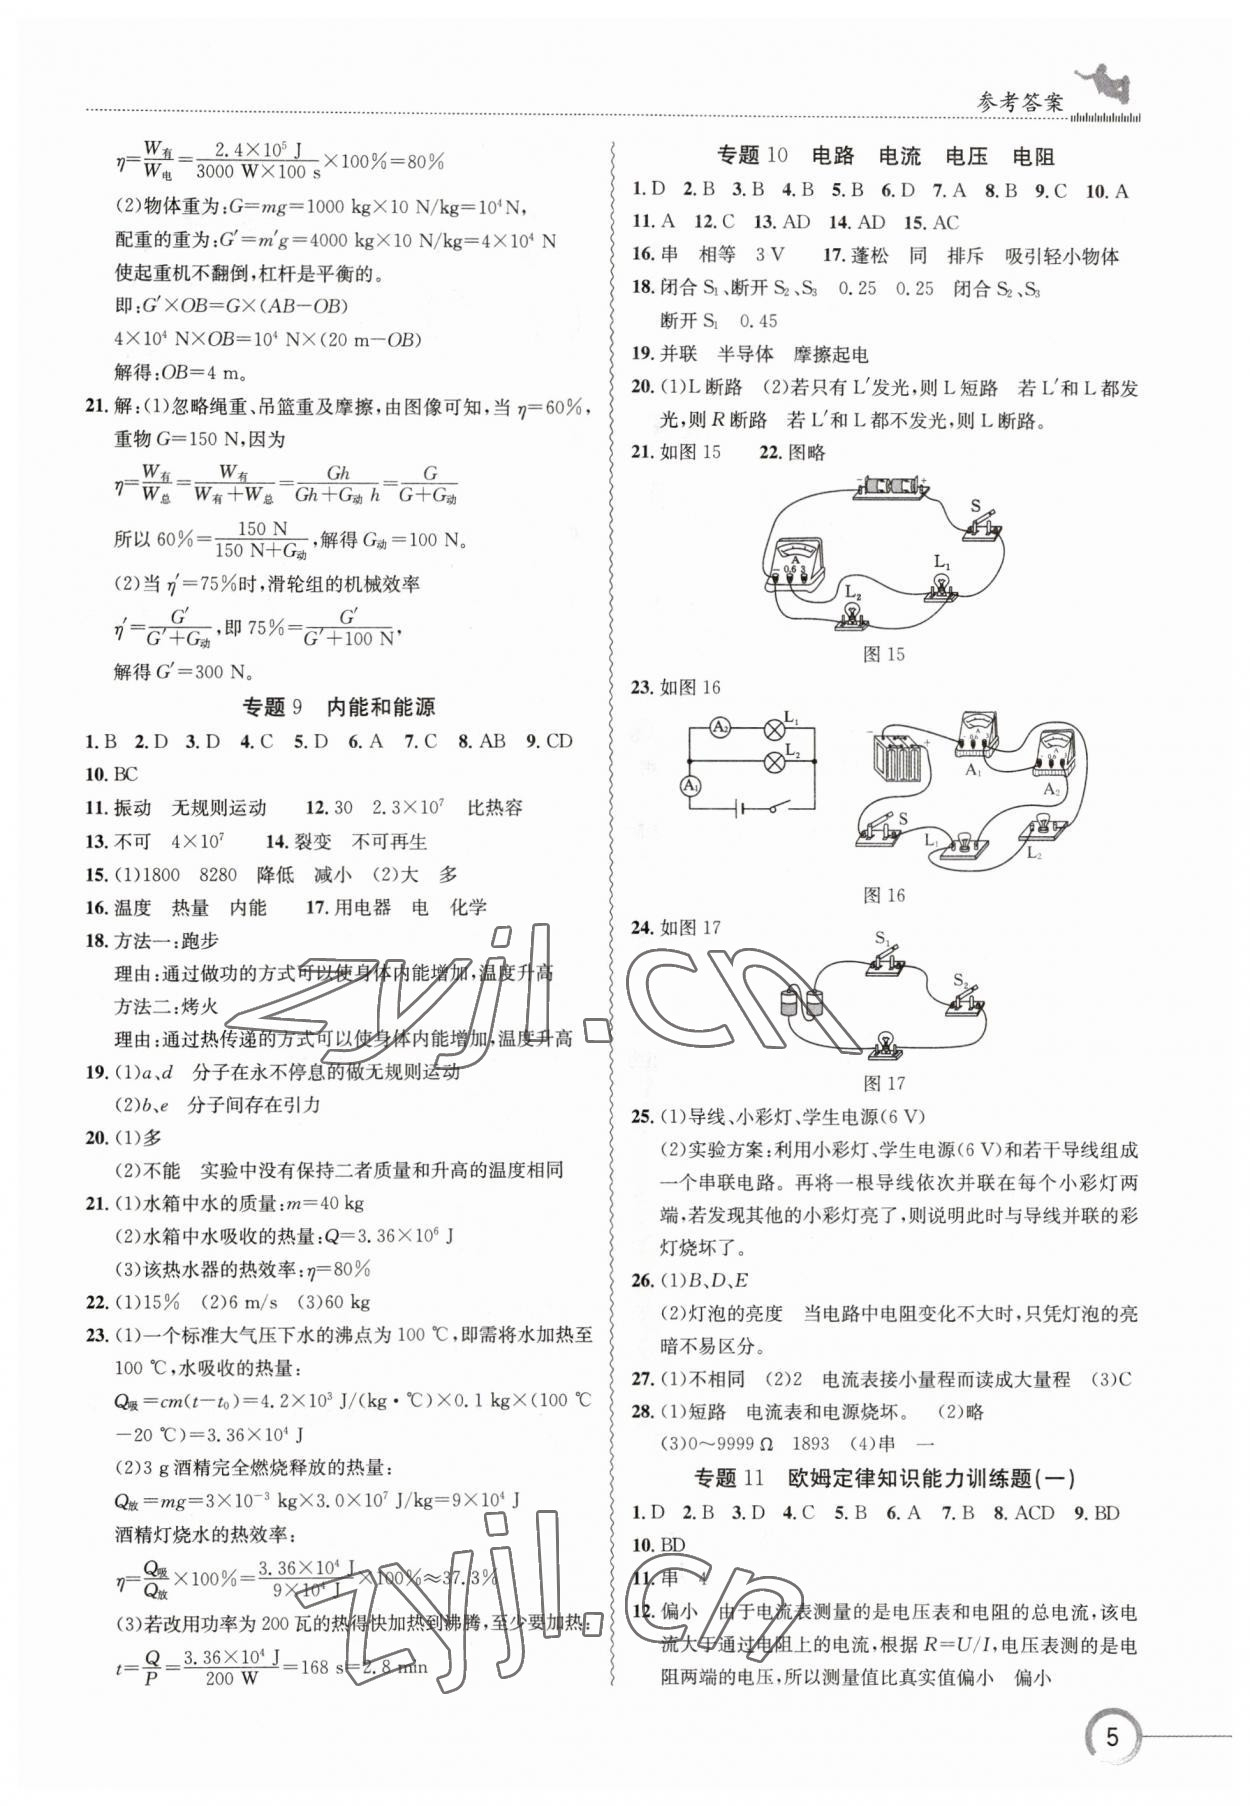 参考答案
η=W有/W电=2.4×10⁵ J/3000 W×100 s×100%=80%
(2)物体重为:G=mg=1000 kg×10 N/kg=10⁴N,
配重的重为:G′=m′g=4000 kg×10 N/kg=4×10⁴ N
使起重机不翻倒,杠杆是平衡的。
即:G′×OB=G×(AB-OB)
4×10⁴ N×OB=10⁴ N×(20 m-OB)
解得:OB=4 m。
21. 解:(1)忽略绳重、吊篮重及摩擦,由图像可知,当 η=60%,
重物 G=150 N,因为
η=W有/W总=W有/W有+W总=Gh/Gh+G动 h=G/G+G动
所以 60%=150 N/150 N+G动,解得 G动=100 N。
(2)当 η′=75%时,滑轮组的机械效率
η′=G′/G′+G动,即 75%=G′/G′+100 N,
解得 G′=300 N。
专题 9 内能和能源
1. B 2. D 3. D 4. C 5. D 6. A 7. C 8. AB 9. CD
10. BC
11. 振动 无规则运动 12. 30 2.3×10⁷ 比热容
13. 不可 4×10⁷ 14. 裂变 不可再生
15. (1)1800 8280 降低 减小 (2)大 多
16. 温度 热量 内能 17. 用电器 电 化学
18. 方法一:跑步
理由:通过做功的方式可以使身体内能增加,温度升高
方法二:烤火
理由:通过热传递的方式可以使身体内能增加,温度升高
19. (1)a、d 分子在永不停息的做无规则运动
(2)b、e 分子间存在引力
20. (1)多
(2)不能 实验中没有保持二者质量和升高的温度相同
21. (1)水箱中水的质量:m=40 kg
(2)水箱中水吸收的热量:Q=3.36×10⁶ J
(3)该热水器的热效率:η=80%
22. (1)15% (2)6 m/s (3)60 kg
23. (1)一个标准大气压下水的沸点为 100 ℃,即需将水加热至
100 ℃,水吸收的热量:
Q吸=cm(t-t₀)=4.2×10³ J/(kg·℃)×0.1 kg×(100 ℃
-20 ℃)=3.36×10⁴ J
(2)3 g 酒精完全燃烧释放的热量:
Q放=mg=3×10⁻³ kg×3.0×10⁷ J/kg=9×10⁴ J
酒精灯烧水的热效率:
η=Q吸/Q放×100%=3.36×10⁴ J/9×10⁴ J×100%≈37.3%
(3)若改用功率为 200 瓦的热得快加热到沸腾,至少要加热:
t=Q/P=3.36×10⁴ J/200 W=168 s=2.8 min
专题 10 电路 电流 电压 电阻
1. D 2. B 3. B 4. B 5. B 6. D 7. A 8. B 9. C 10. A
11. A 12. C 13. AD 14. AD 15. AC
16. 串 相等 3 V 17. 蓬松 同 排斥 吸引轻小物体
18. 闭合 S₁、断开 S₂、S₃ 0.25 0.25 闭合 S₂、S₃
断开 S₁ 0.45
19. 并联 半导体 摩擦起电
20. (1)L 断路 (2)若只有 L′发光,则 L 短路 若 L′和 L 都发
光,则 R 断路 若 L′和 L 都不发光,则 L 断路。
21. 如图 15 22. 图略
- +
S
A
- 0.6 3
L₁
L₂
图 15
23. 如图 16
A₂ L₁
L₂
A₁
- +
A
- 0.6 3
A₁
A₂
S
L₁
L₂
图 16
24. 如图 17
S₁
S₂
图 17
25. (1)导线、小彩灯、学生电源(6 V)
(2)实验方案:利用小彩灯、学生电源(6 V)和若干导线组成
一个串联电路。再将一根导线依次并联在每个小彩灯两
端,若发现其他的小彩灯亮了,则说明此时与导线并联的彩
灯烧坏了。
26. (1)B、D、E
(2)灯泡的亮度 当电路中电阻变化不大时,只凭灯泡的亮
暗不易区分。
27. (1)不相同 (2)2 电流表接小量程而读成大量程 (3)C
28. (1)短路 电流表和电源烧坏。 (2)略
(3)0~9999 Ω 1893 (4)串 一
专题 11 欧姆定律知识能力训练题(一)
1. D 2. B 3. D 4. C 5. C 6. A 7. B 8. ACD 9. BD
10. BD
11. 串 4
12. 偏小 由于电流表测量的是电压表和电阻的总电流,该电
流大于通过电阻上的电流,根据 R=U/I,电压表测的是电
阻两端的电压,所以测量值比真实值偏小 偏小
5
zyjl.cn
zyjl.cn